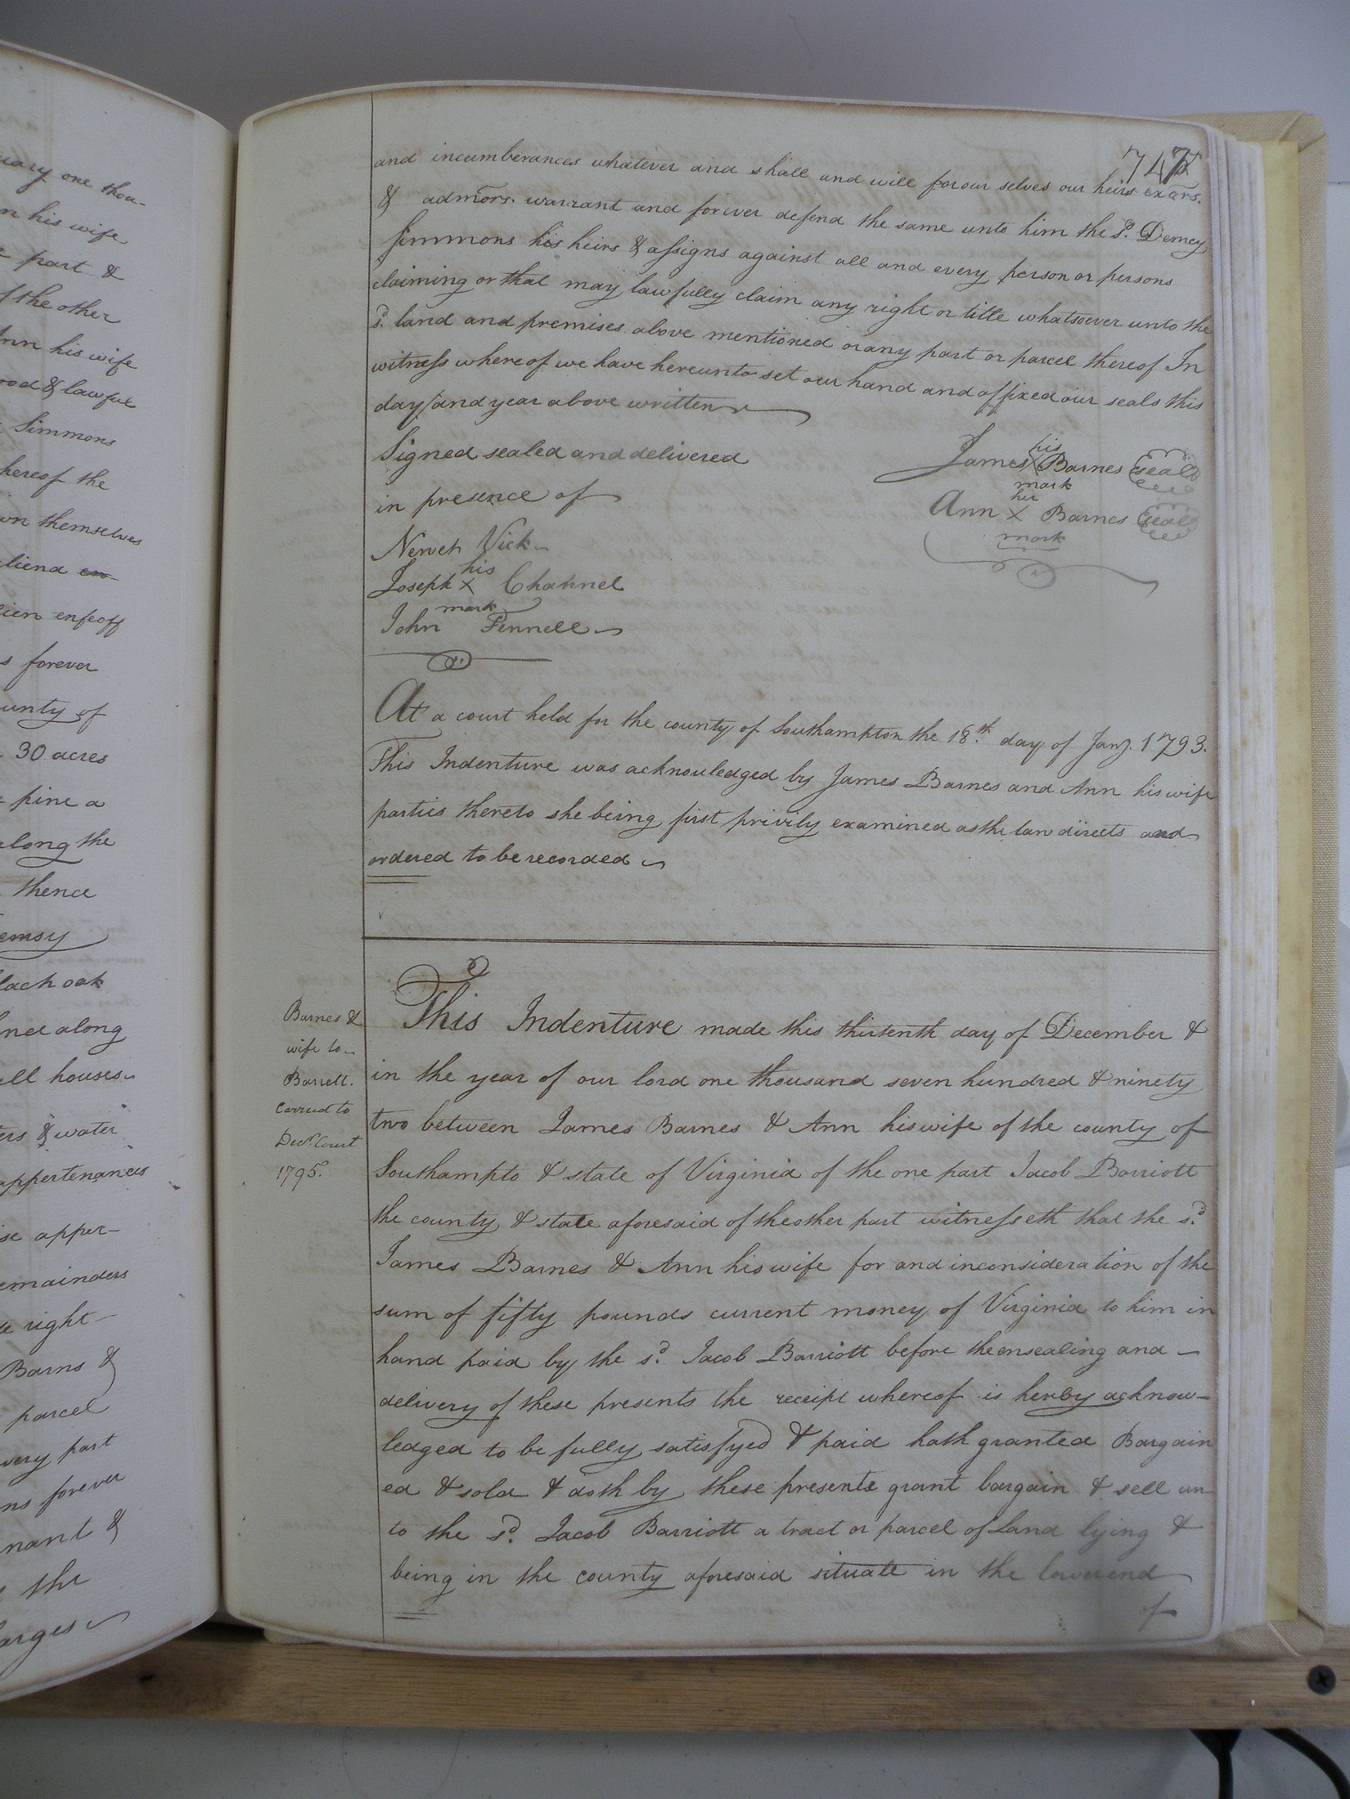 uary one thou-
n his wife
part &
f the other
Ann his wife
ood & lawful
Simmons
hereof the
wn themselves
liend en-
lien enfeoff
s forever
unty of
30 acres
pine a
along the
thence
emsy
lack oak
and along
ell houses
ters & water
appertenances
se apper-
emainders
te right
Barns &
parcel
very part
ns forever
nant &
the
arges
747
and incumberances whatever and shall and will for our selves our heirs exōrs.
& admōrs. warrant and forever defend the same unto him the sd. Demcy
Simmons his heirs & assigns against all and every person or persons
claiming or that may lawfully claim any right or title whatsoever unto the
sd. land and premises above mentioned or any part or parcel thereof In
witness whereof we have hereunto set our hand and affixed our seals this
day and year above written
Signed sealed and delivered
in presence of
his
James X Barnes seal
mark
her
Ann X Barnes seal
mark
Vick
his
Joseph X Channel
mark
John Fennell
At a court held for the county of Southampton the 18th. day of Jany. 1793.
This Indenture was acknowledged by James Barnes and Ann his wife
parties thereto she being first privily examined as the law directs and
ordered to be recorded
Barnes &
wife to
Barrett.
carried to
Decr. Court
1795.
This Indenture made this thirtenth day of December &
in the year of our lord one thousand seven hundred & ninety
two between James Barnes & Ann his wife of the county of
Southampto & state of Virginia of the one part Jacob Barriott
the county & state aforesaid of the other part witnesseth that the sd.
James Barnes & Ann his wife for and inconsideration of the
sum of fifty pounds current money of Virginia to him in
hand paid by the sd. Jacob Barriott before the ensealing and
delivery of these presents the receipt whereof is herby acknow-
ledged to be fully satisfyed & paid hath granted Bargain
ed & sold & doth by these presents grant bargain & sell un
to the sd. Jacob Barriott a tract or parcel of Land lying &
being in the county aforesaid situate in the lowerend
of